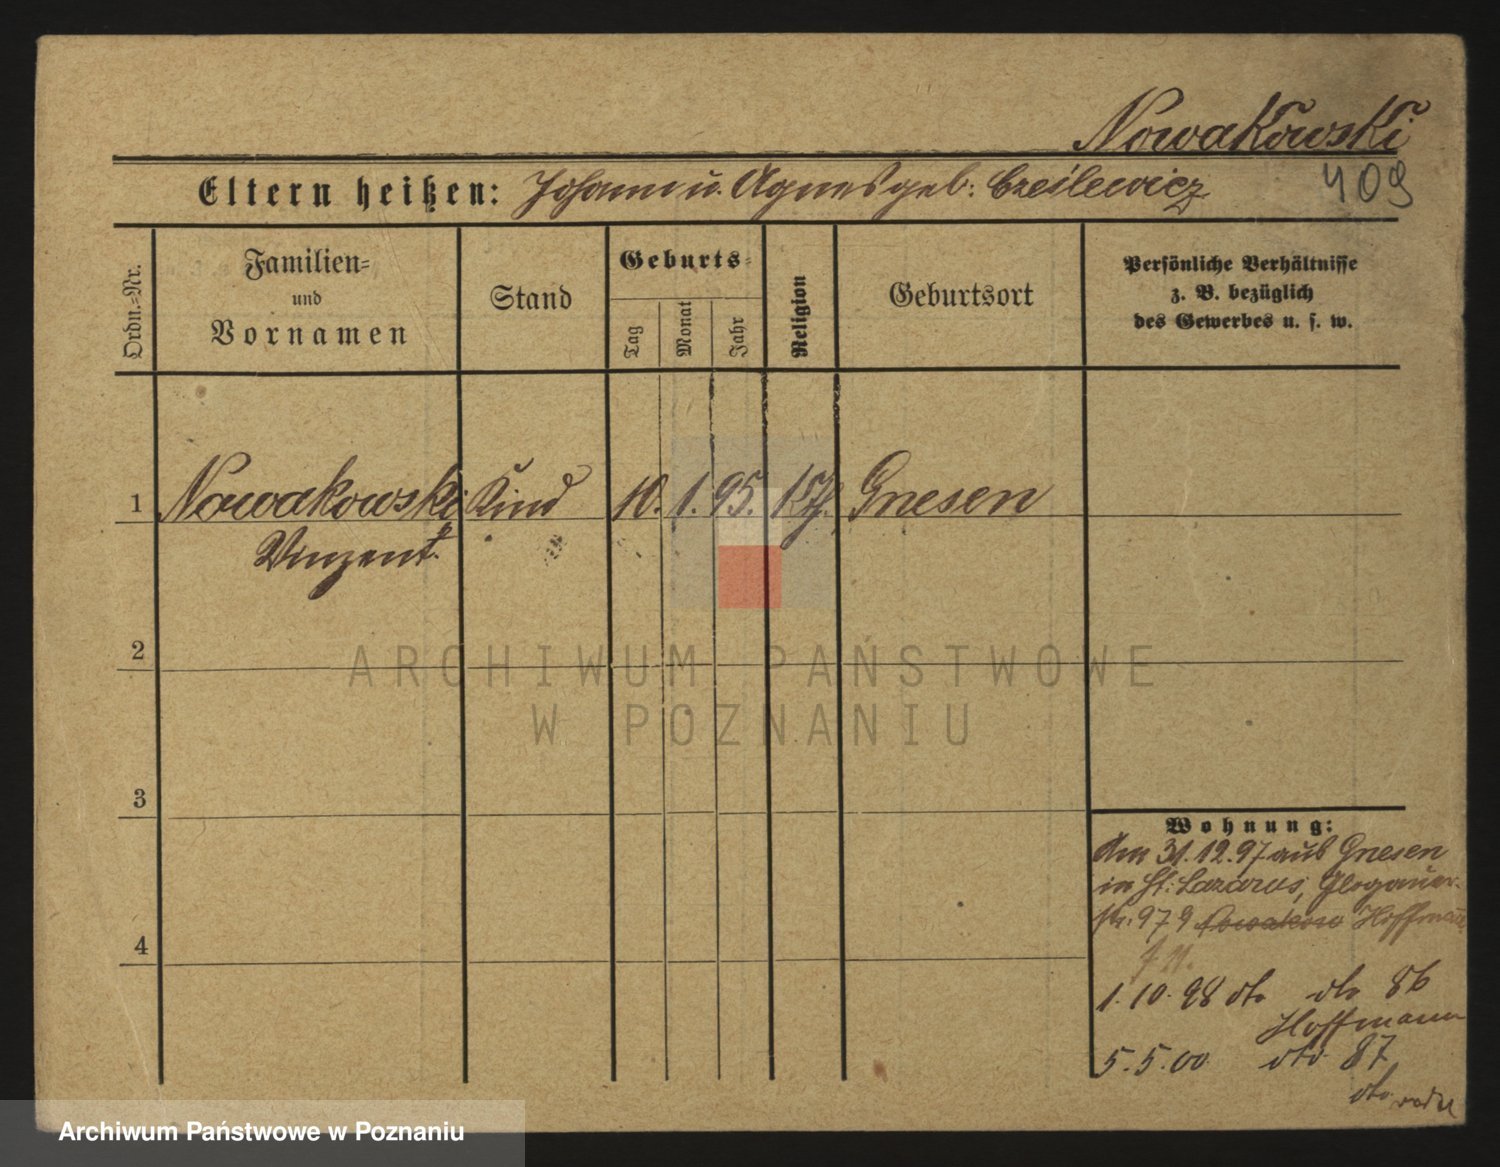 Nowakowski
409
Eltern heißen: Johann u. Agnes geb: Cześlewicz
Ordn.-Nr.
Familien-
und
Vornamen
Stand
Geburts-
Tag
Monat
Jahr
Religion
Geburtsort
Persönliche Verhältnisse
z. B. bezüglich
des Gewerbes u. s. w.
1 Nowakowski Kind 10. 1. 95. kth. Gnesen
Vinzent
2
3
4
Wohnung:
Am 31.12.97 aus Gnesen
in St: Lazarus, Glogauer-
str. 97 9 Hoffmann
1.10.98 dto dto 86
Hoffmann
5.5.00 dto 87
dto
ARCHIWUM PAŃSTWOWE
W POZNANIU
Archiwum Państwowe w Poznaniu